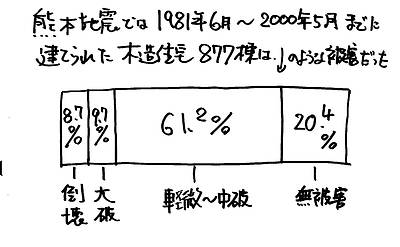 熊本地震では1981年6月〜2000年5月までに
建てられた木造住宅877棟は、↓のような被害だった
8.7%
9.7%
61.2%
20.4%
倒壊
大破
軽微〜中破
無被害